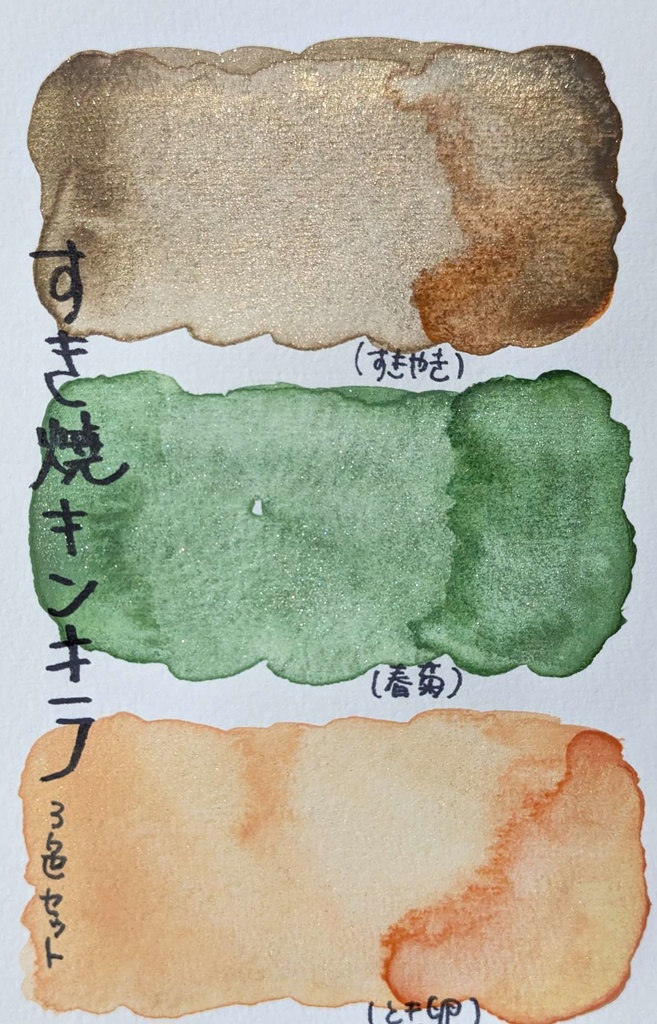 すき焼キンキラ
3色セット
(すきやき)
(春菊)
(とき卵)